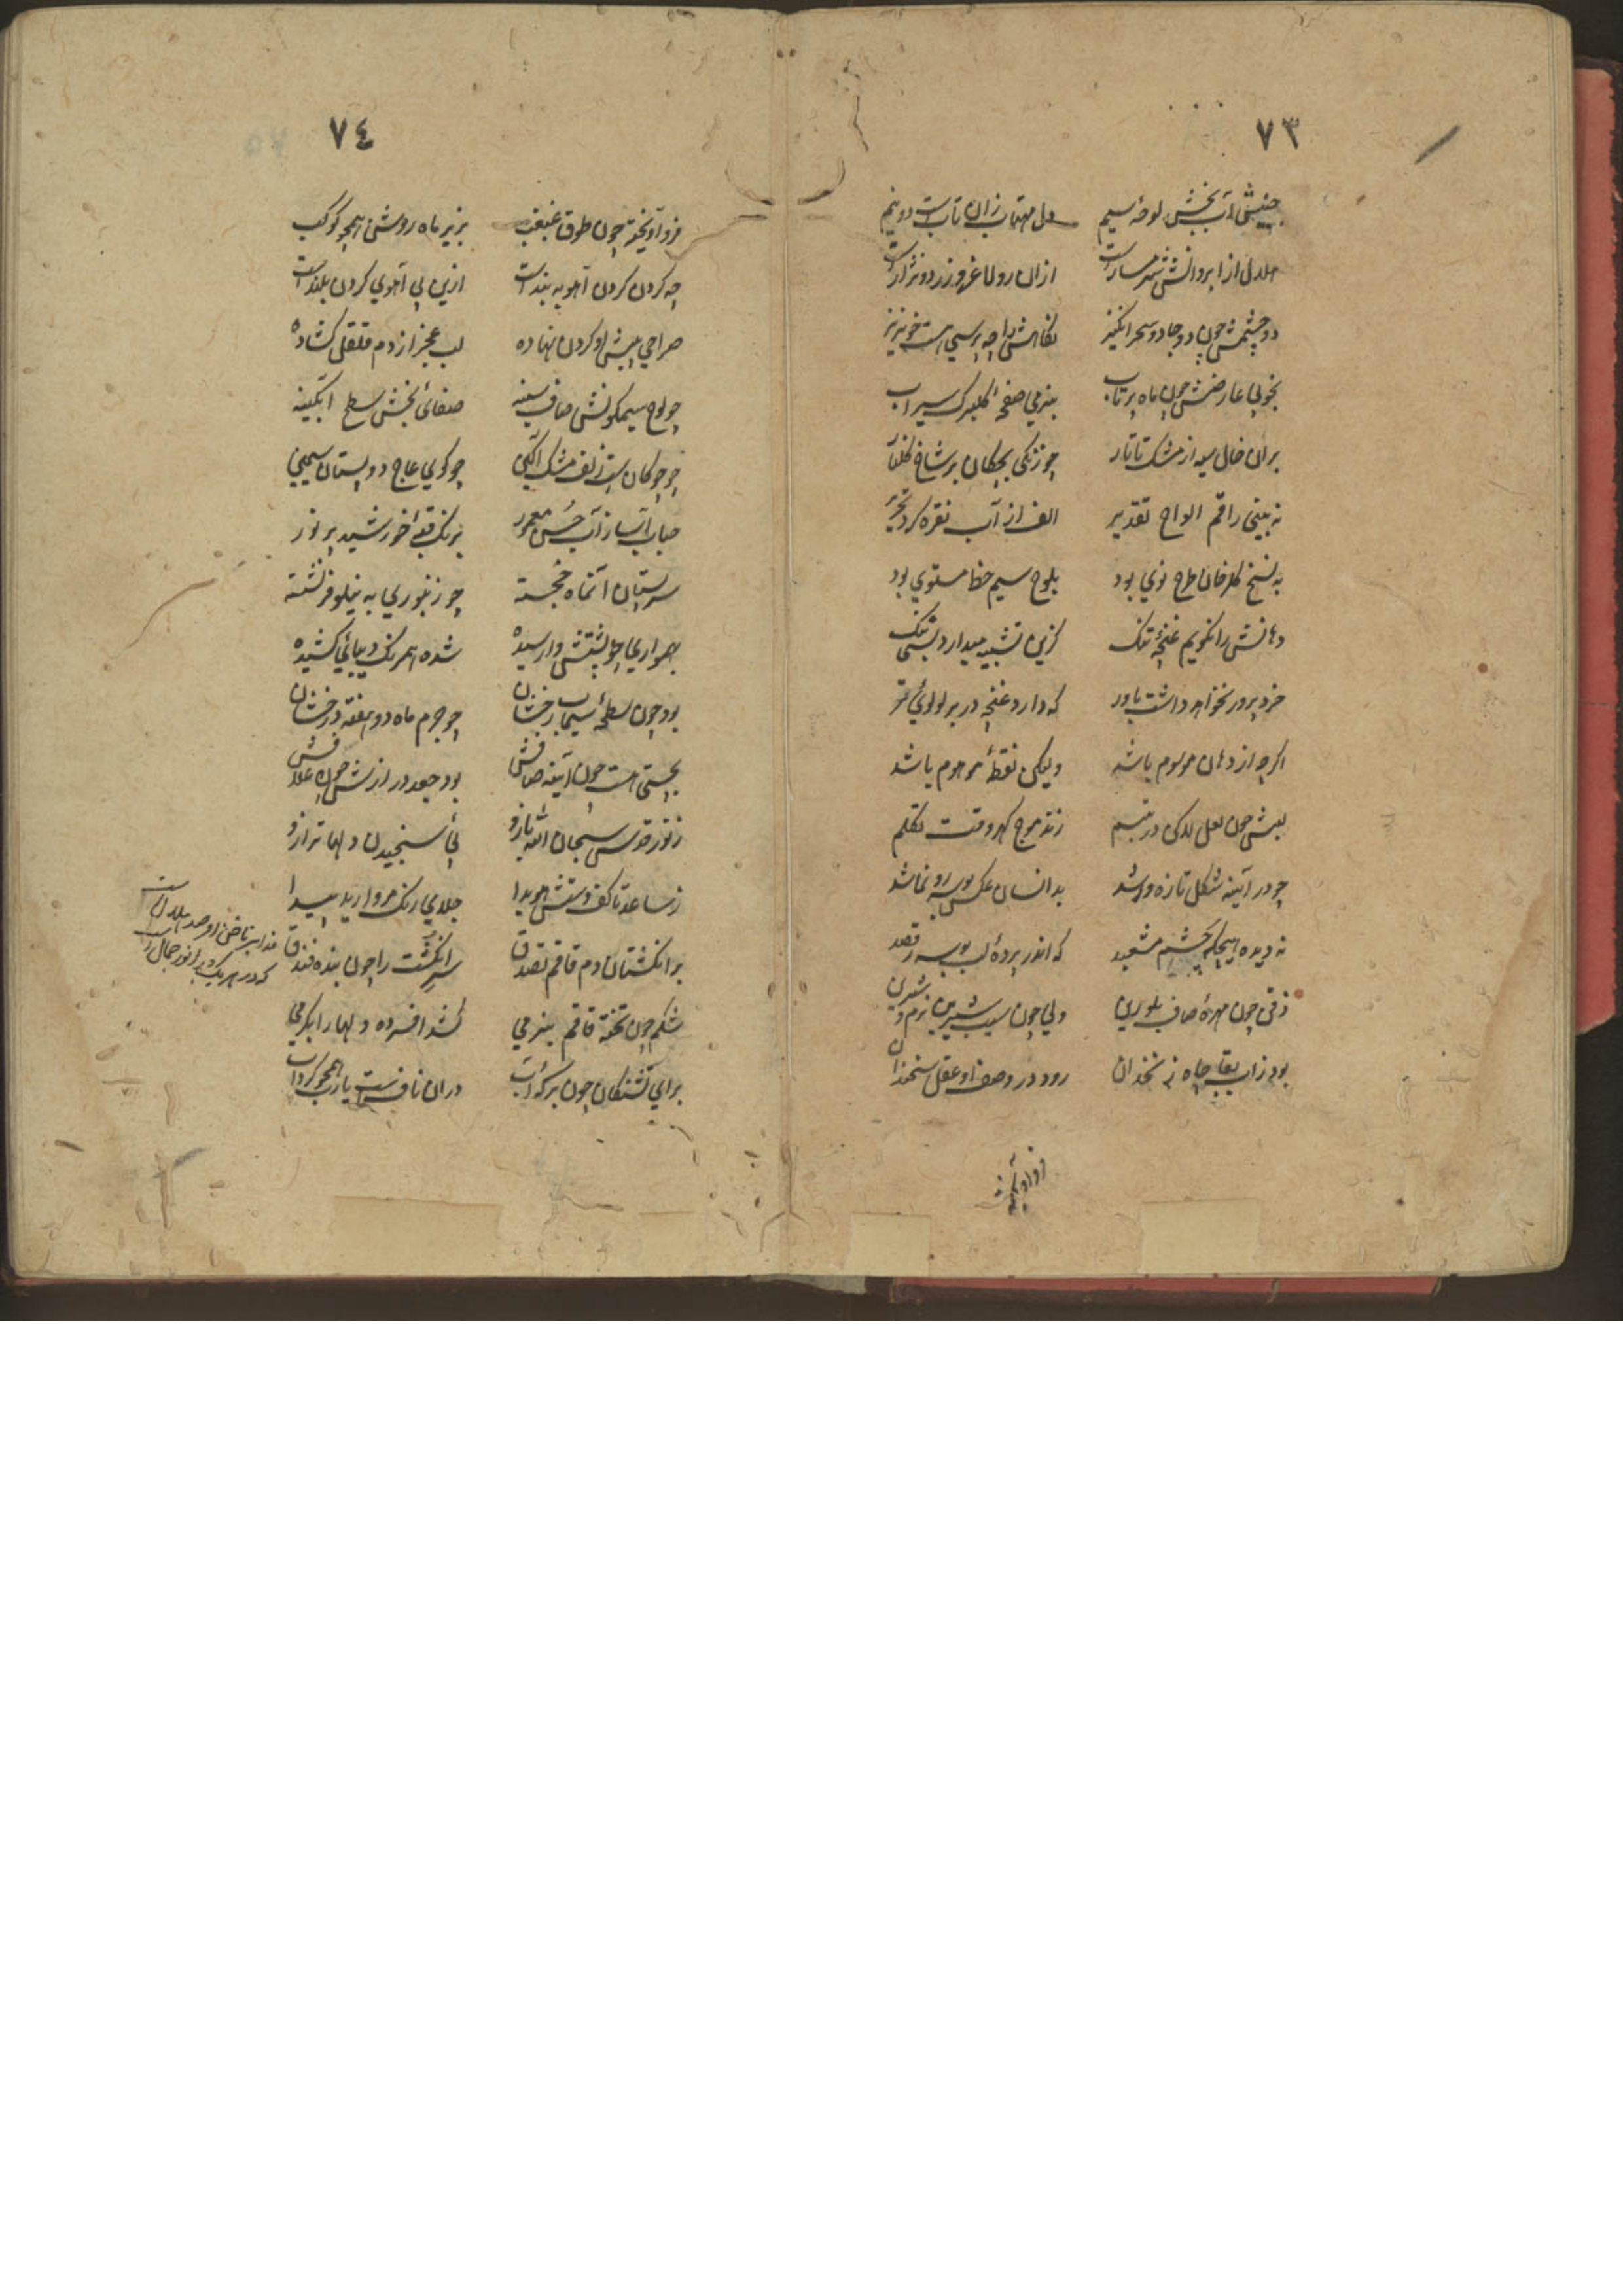 ٧٣
جبینش آب بخش لوحهٔ سیم دل مهتاب زان تابست دو نیم
هلال از ابروانش شرمسارست ازان رو لاغر و زرد و نزارست
دو چشمش چون دو جادو سحر انگیز نگاهش را چه پرسی هست خونریز
بخوبی عارضش چون ماه پرتاب بنرمی صفحهٔ گلبرک سیراب
بران خال سیه از مشک تاتار چو زنکی بچکان بر شاخ گلنار
نه بینی راقم الواح تقدیر الف از آب نقره کرد تحریر
به نسخ گلرخان طرح نوی بود بلوح سیم خط مستوی بود
دهانش را نکویم غنچهٔ تنک کزین تشبیه میدارد بسی ننک
خرد پرور نخواهد داشت باور که دارد غنچه در بر لولوئی تر
اکرچه از دهان موسوم باشد ولیکن نقطهٔ موهوم باشد
لبش چون لعل لیکن در تبسم زند موج کهر وقت تکلم
چو در آیینه شکل تازه وا شد بدانسان عکس بوسه رو نما شد
نه دیده هیچکه چشم مشعبد که اندر پردهٔ لب بوسه رقصد
ذقن چون مهرهٔ صاف بلورین ولی چون سیب شیرین نرم و شیرین
بود زاب بقا چاه زنخدان رود در وصف او عقل سخندان
فرو آویخته
٧٤
فرو آویخته چون طوق غبغب بزیر ماه روشن همچو کوکب
چه کردن کردن آهو به بندست ازین بی آهوی کردن بلندست
صراحی پیش او کردن نهاده لب عجز از دم قلقل کشاده
چو لوح سیمکونش صاف سینه صفائی بخش سطح آبکینه
چو چوکان ست زلف مشک آکین چو کوی عاج دو پستان سیمین
حباب آسا ز آب حُسن معمور برنک قبهٔ خورشید پر نور
سر پستان آنماه خجسته چو زنبوری به نیلوفر نشسته
بهمواری چو پشتش وارسیده شده همرنک دیبائی کشیده
بود چون سطح سیماب رخشان چو جرم ماه دو هفته درخشان
بچستی هست چون آیینه صافش بود جعد درازش چون غلافش
ز نور قدس سبحان الله بازو پئ سنجیدن دلها ترازو
ز ساعد تا کف دستش هویدا جلای رنک مروارید پیدا
بر انکشتان دم قاقم تصدق سر انکشت را چون بنده فندق
شکم چون تختهٔ قاقم بنرمی کشد افسرده دلها را بکرمی
برای تشنکان چون برکهٔ آب دران نافست یارب همچو کرداب
ناخن او صد هلالست
که در هر یک دیرا نور جمالست